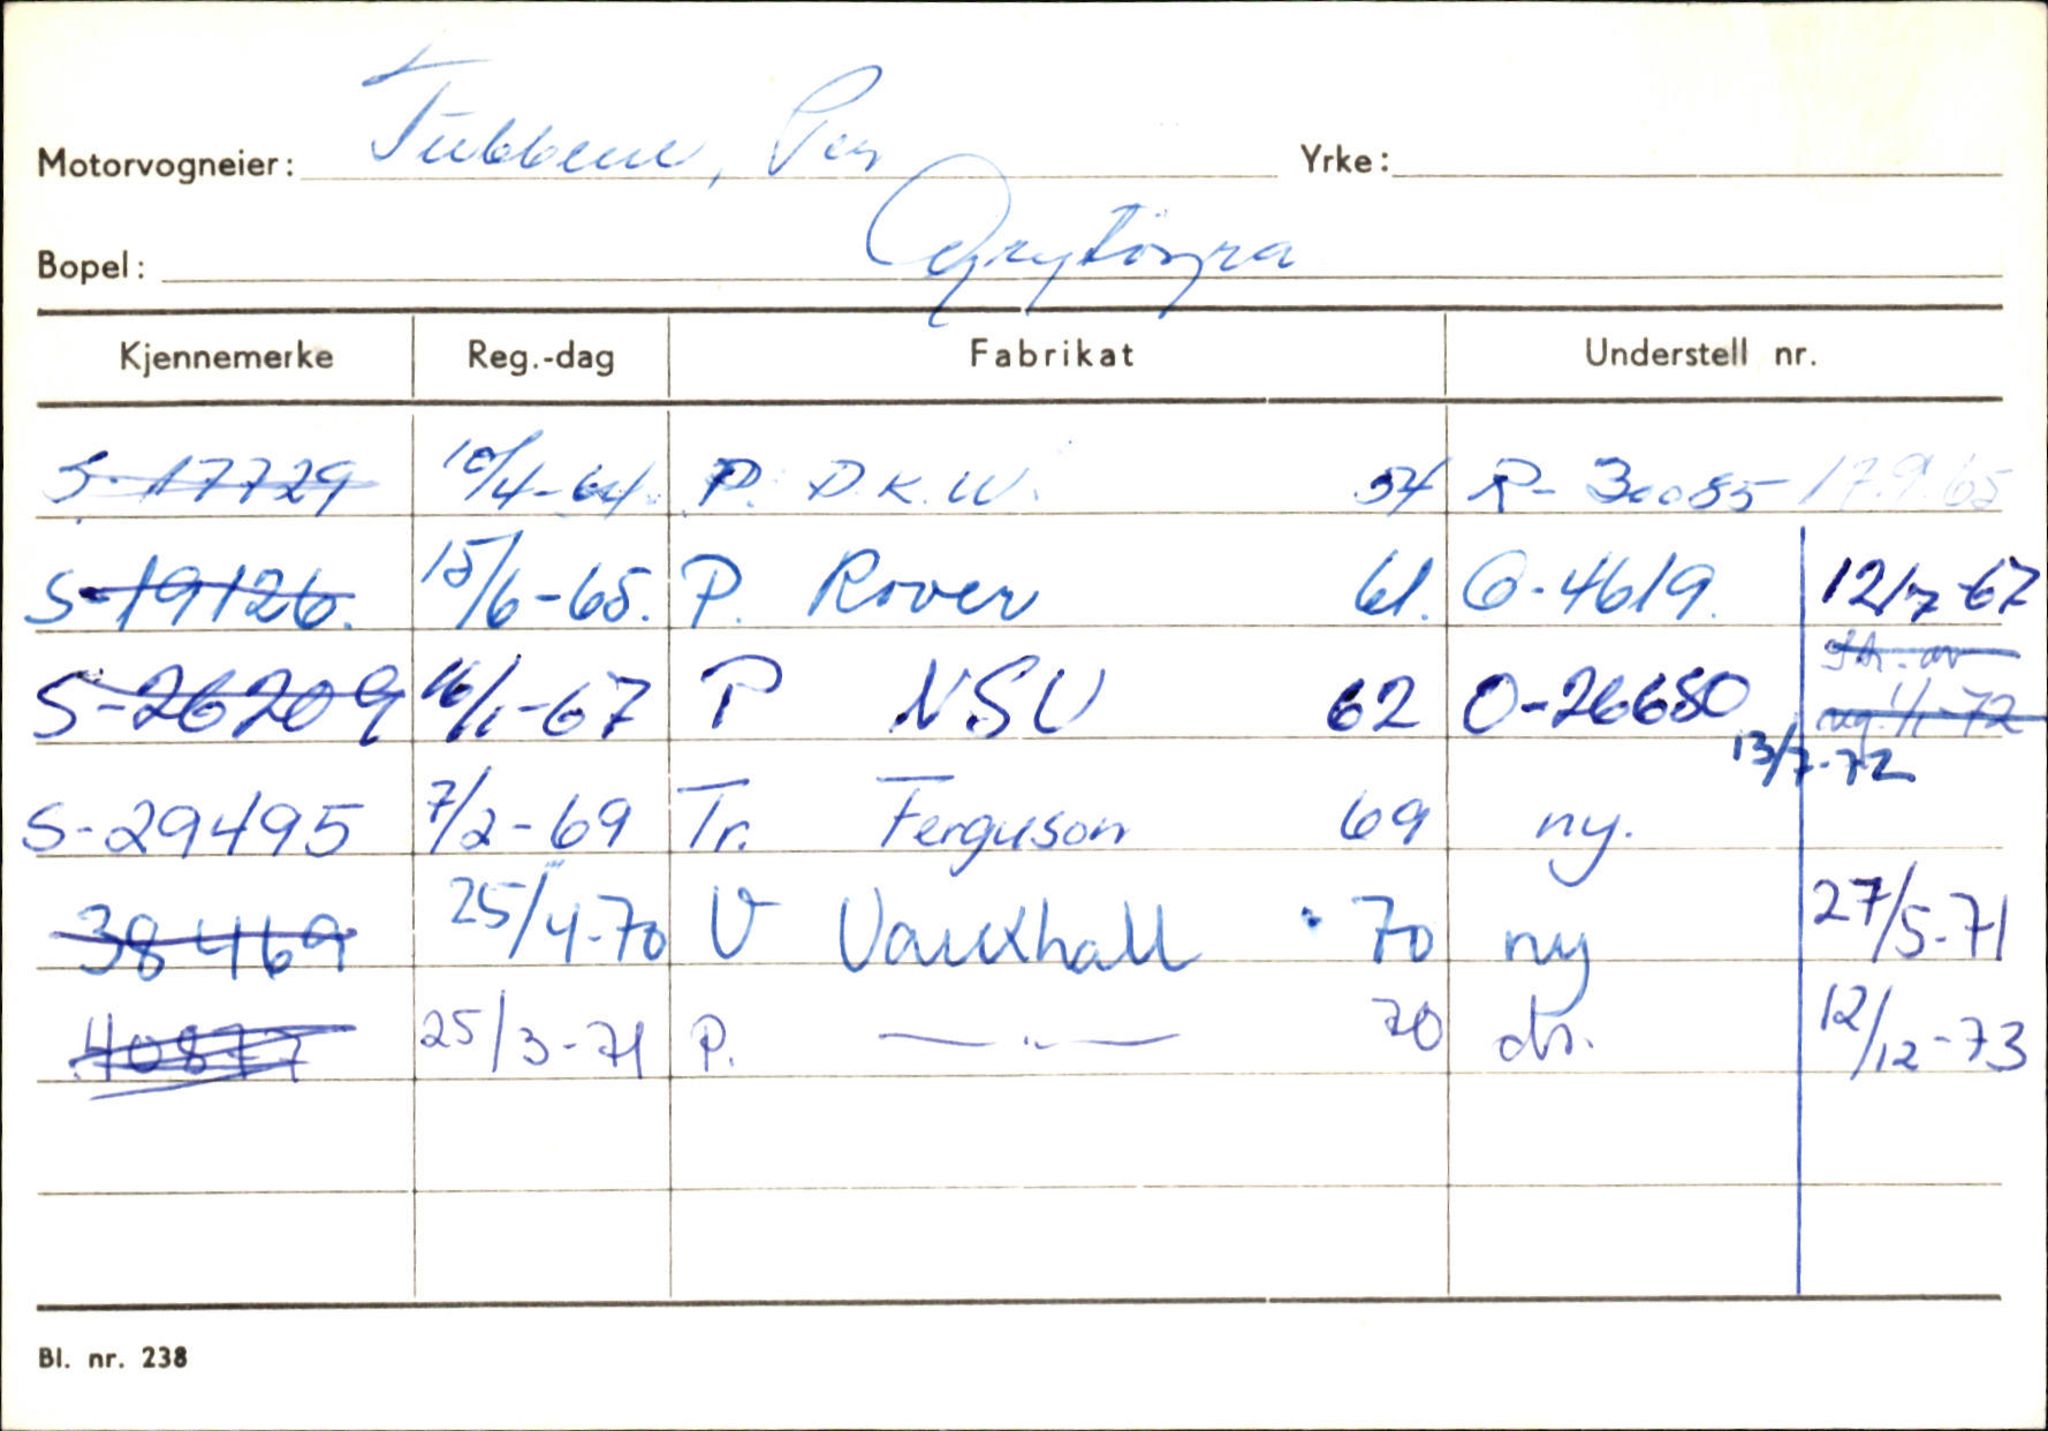 Motorvogneier: Tubbene, Per Yrke:
Bopel: Grytöyra
Kjennemerke Reg.-dag Fabrikat Understell nr.
S-17729 10/4-64. P. D.K.W. 54 R-30085 17.9.65
S-19126. 15/6-65. P. Rover 61. O-4619. 12/7-67
S-26209 16/1-67 P NSU 62 O-26680 Str. av
reg. 1/1-72
13/7-72
S-29495 7/2-69 Tr. Ferguson 69 ny.
38469 25/4-70 V Vauxhall 70 ny 27/5-71
40877 25/3-71 P. —"— 70 do. 12/12-73
Bl. nr. 238